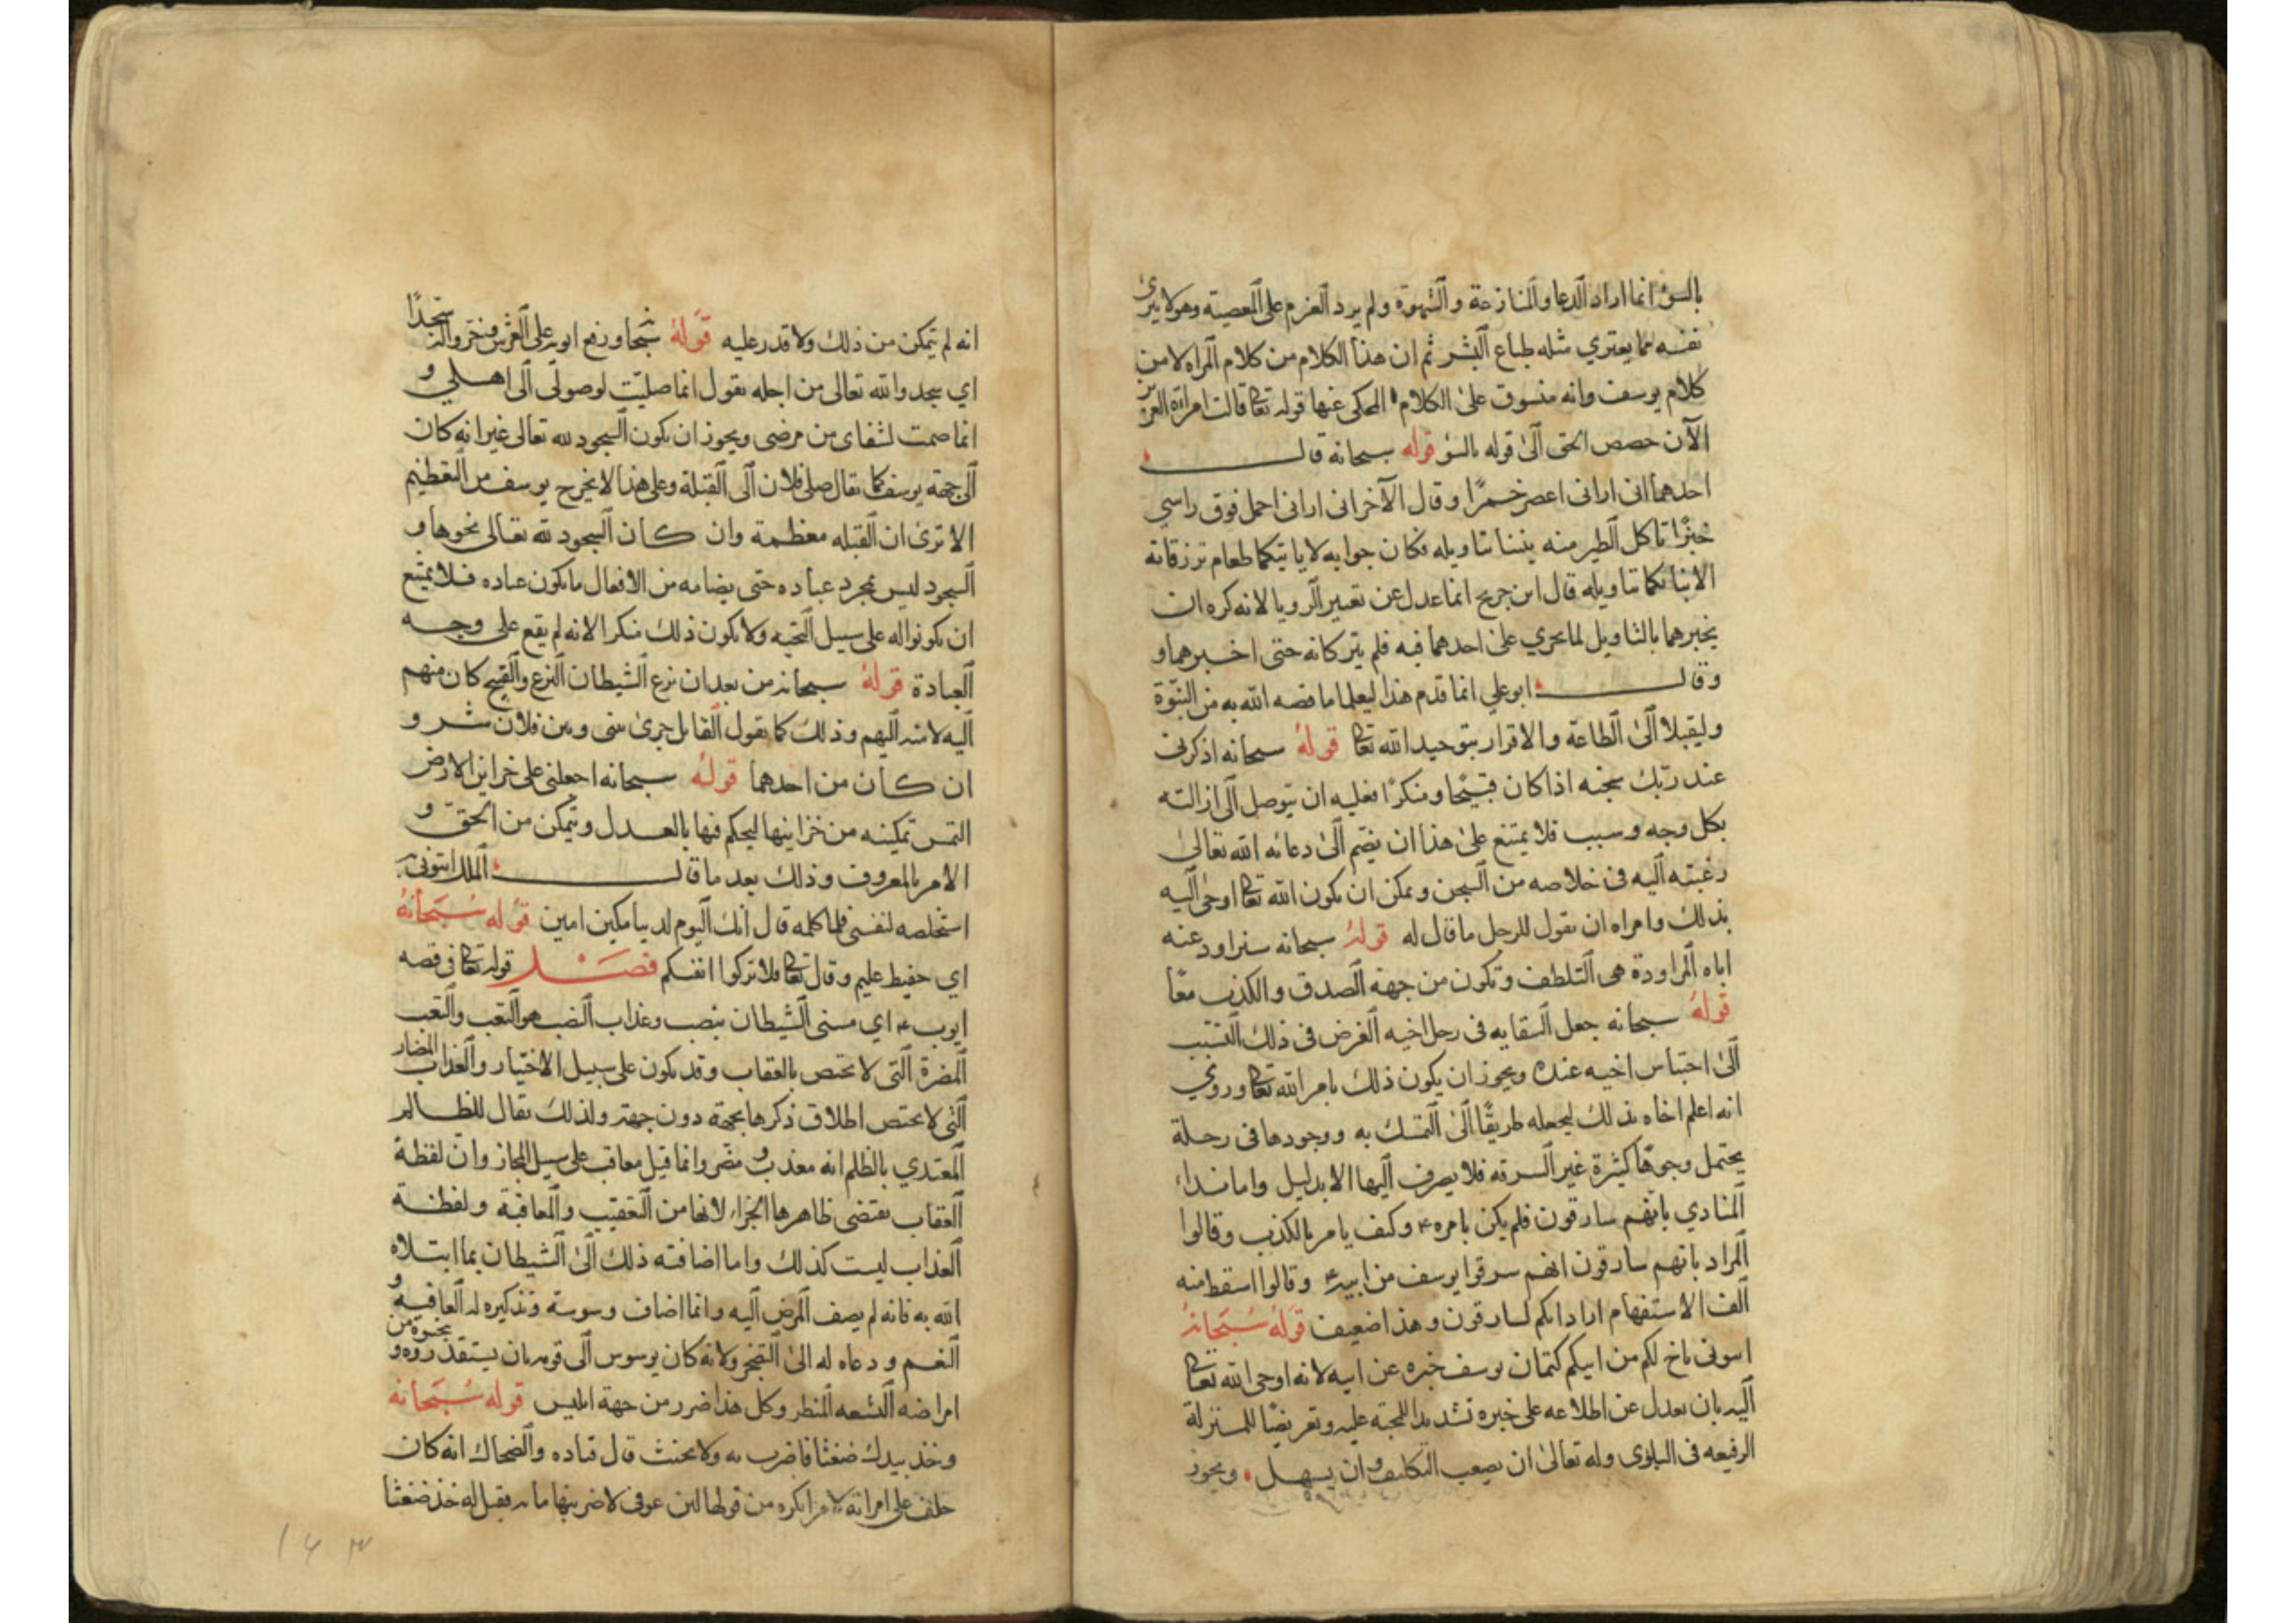 بالسؤ انما اراد الدعا والمنازعة والشهوة ولم يرد العزم على المعصية وهو لا يبرئ
نفسه مما يعتري مثله طباع البشر ثم ان هذا الكلام من كلام المراه لا من
كلام يوسف وانه منسوق على الكلام المحكى عنها قوله تعا قالت امراة العزيز
الآن حصص الحق الى قوله بالسؤ قوله سبحانه قال
احدهما انى ارانى اعصر خمرًا وقال الآخر انى ارانى احمل فوق راسي
خبزًا تاكل الطير منه نبئنا بتاويله فكان جوابه لا ياتيكما طعام ترزقانه
الا نباتكما بتاويله قال ابن جريح انما عدل عن تعبير الرويا لانه كره ان
يخبرهما بالتاويل لما يحرى على احدهما فيه فلم يتركانه حتى اخبرهما و
وقال ابو علي انما قدم هذا ليعلما ما خصه الله به من النبوة
وليقبلا الى الطاعة والاقرار بتوحيد الله تعا قوله سبحانه اذكرنى
عند ربك سجنه اذا كان قبيحًا ومنكرًا فعليه ان يتوصل الى ازالته
بكل وجه وسبب فلا يمتنع على هذا ان يضم الى دعائه الله تعالى
رغبته اليه فى خلاصه من السجن ويمكن ان يكون الله تعا اوحى اليه
بذلك وامراه ان يقول للرجل ما قال له قوله سبحانه سنراود عنه
اباه المراودة هى التلطف وتكون من جهة الصدق والكذب معًا
قوله سبحانه جعل السقايه فى رحل اخيه الغرض فى ذلك التسبب
الى احتباس اخيه عنده ويجوز ان يكون ذلك بامر الله تعا وروي
انه اعلم اخاه بذلك ليجعله طريقًا الى التمسك به ووجودها فى رحلة
يحتمل وجوهًا كثيرة غير السرقه فلا يصرف اليها الا بدليل واما نداء
المنادي بانهم سارقون فلم يكن بامره ع وكيف يامر بالكذب وقالوا
المراد بانهم سارقون انهم سرقوا يوسف من ابيه ع وقالوا اسقط منه
الف الاستفهام اراد انكم لسارقون وهذا ضعيف قوله سبحانه
اىتونى باخ لكم من ابيكم كتمان يوسف خبره عن ابيه لانه اوحى الله تعا
اليه بان يعدل عن اطلاعه على خبره تشديدا للمحنة عليه وتعريضًا للمنزلة
الرفيعه فى البلوى وله تعالى ان يصعب التكليف وان يسهل ويجوز
انه لم يتمكن من ذلك ولا قدر عليه قوله سبحا ورفع ابويه على العرش وخروا له سجدًا
اي سجدوا لله تعالى من اجله يقول انما صليت لوصولى الى اهلي و
انما صمت لشفاى من مرضى ويجوز ان يكون السجود لله تعالى غير انه كان
الى جهة يوسف كما يقال صلى فلان الى القبلة وعلى هذا لا يخرج يوسف من التعظيم
الا ترى ان القبله معظمة وان كان السجود لله تعالى نحوها و
السجود ليس بمجرد عباده حتى يضامه من الافعال ما يكون عباده فلا يمتنع
ان يكونوا له على سبيل التحيه ولا يكون ذلك منكرا لانه لم يقع على وجه
العبادة قوله سبحانه من بعد ان نزع الشيطان النزع والقبيح كان منهم
اليه لا منه اليهم وذلك كما يقول القايل جرى بينى وبين فلان شر و
ان كان من احدهما قوله سبحانه اجعلنى على خزاين الارض
التمس تمكينه من خزاينها ليحكم فيها بالعدل ويتمكن من الحق و
الامر بالمعروف وذلك بعد ما قال الملك ايتونى به
استخلصه لنفسى فلما كلمه قال انك اليوم لدينا مكين امين قوله سبحانه
اي حفيظ عليم وقال تعا فلا تزكوا انفسكم فصل قوله تعا فى قصه
ايوب ع اي مسنى الشيطان بنصب وعذاب النصب هو التعب والتعب
المضرة التى لا يختص بالعقاب وقد يكون على سبيل الاختيار والعذاب المضار
التى لا يختص اطلاق ذكرها بجهة دون جهة ولذلك يقال للظالم
المعتدي بالظلم انه معذب ومضر وانما قيل معاقب على سبيل المجاز وان لفظة
العقاب يقتضى ظاهرها الجزاء لانها من التعقيب والمعاقبة ولفظة
العذاب ليست كذلك واما اضافته ذلك الى الشيطان بما ابتلاه
الله به فانه لم يصف المرض اليه وانما اضاف وسوسة وتذكيره له العافيه و
النعم ودعاه له الى التضجر ولانه كان يوسوس الى قومه بان يستقذروه و يخرجوه من
امراضه البشعه المنظر وكل هذا ضرر من جهة ابليس قوله سبحانه
وخذ بيدك ضغثا فاضرب به ولا تحنث قال قتاده والضحاك انه كان
حلف على امراته لامر انكره من قولها لئن عوفى لاضربنها مايه فقيل له خذ ضغثا